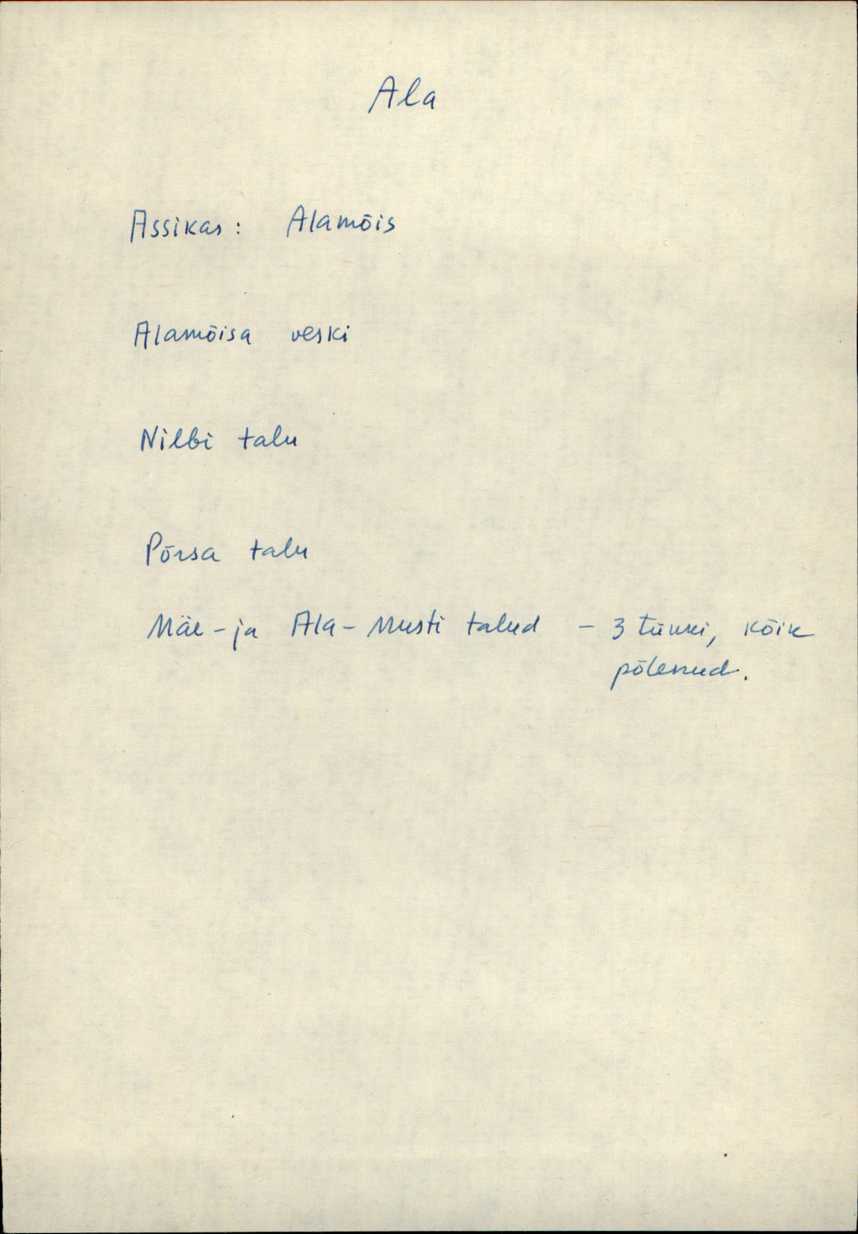 Ala
Assikas: Alamõis
Alamõisa veski
Nilbi talu
Põrsa talu
Mäe- ja Ala-Musti talud - 3 tükki, kõik
põlenud.